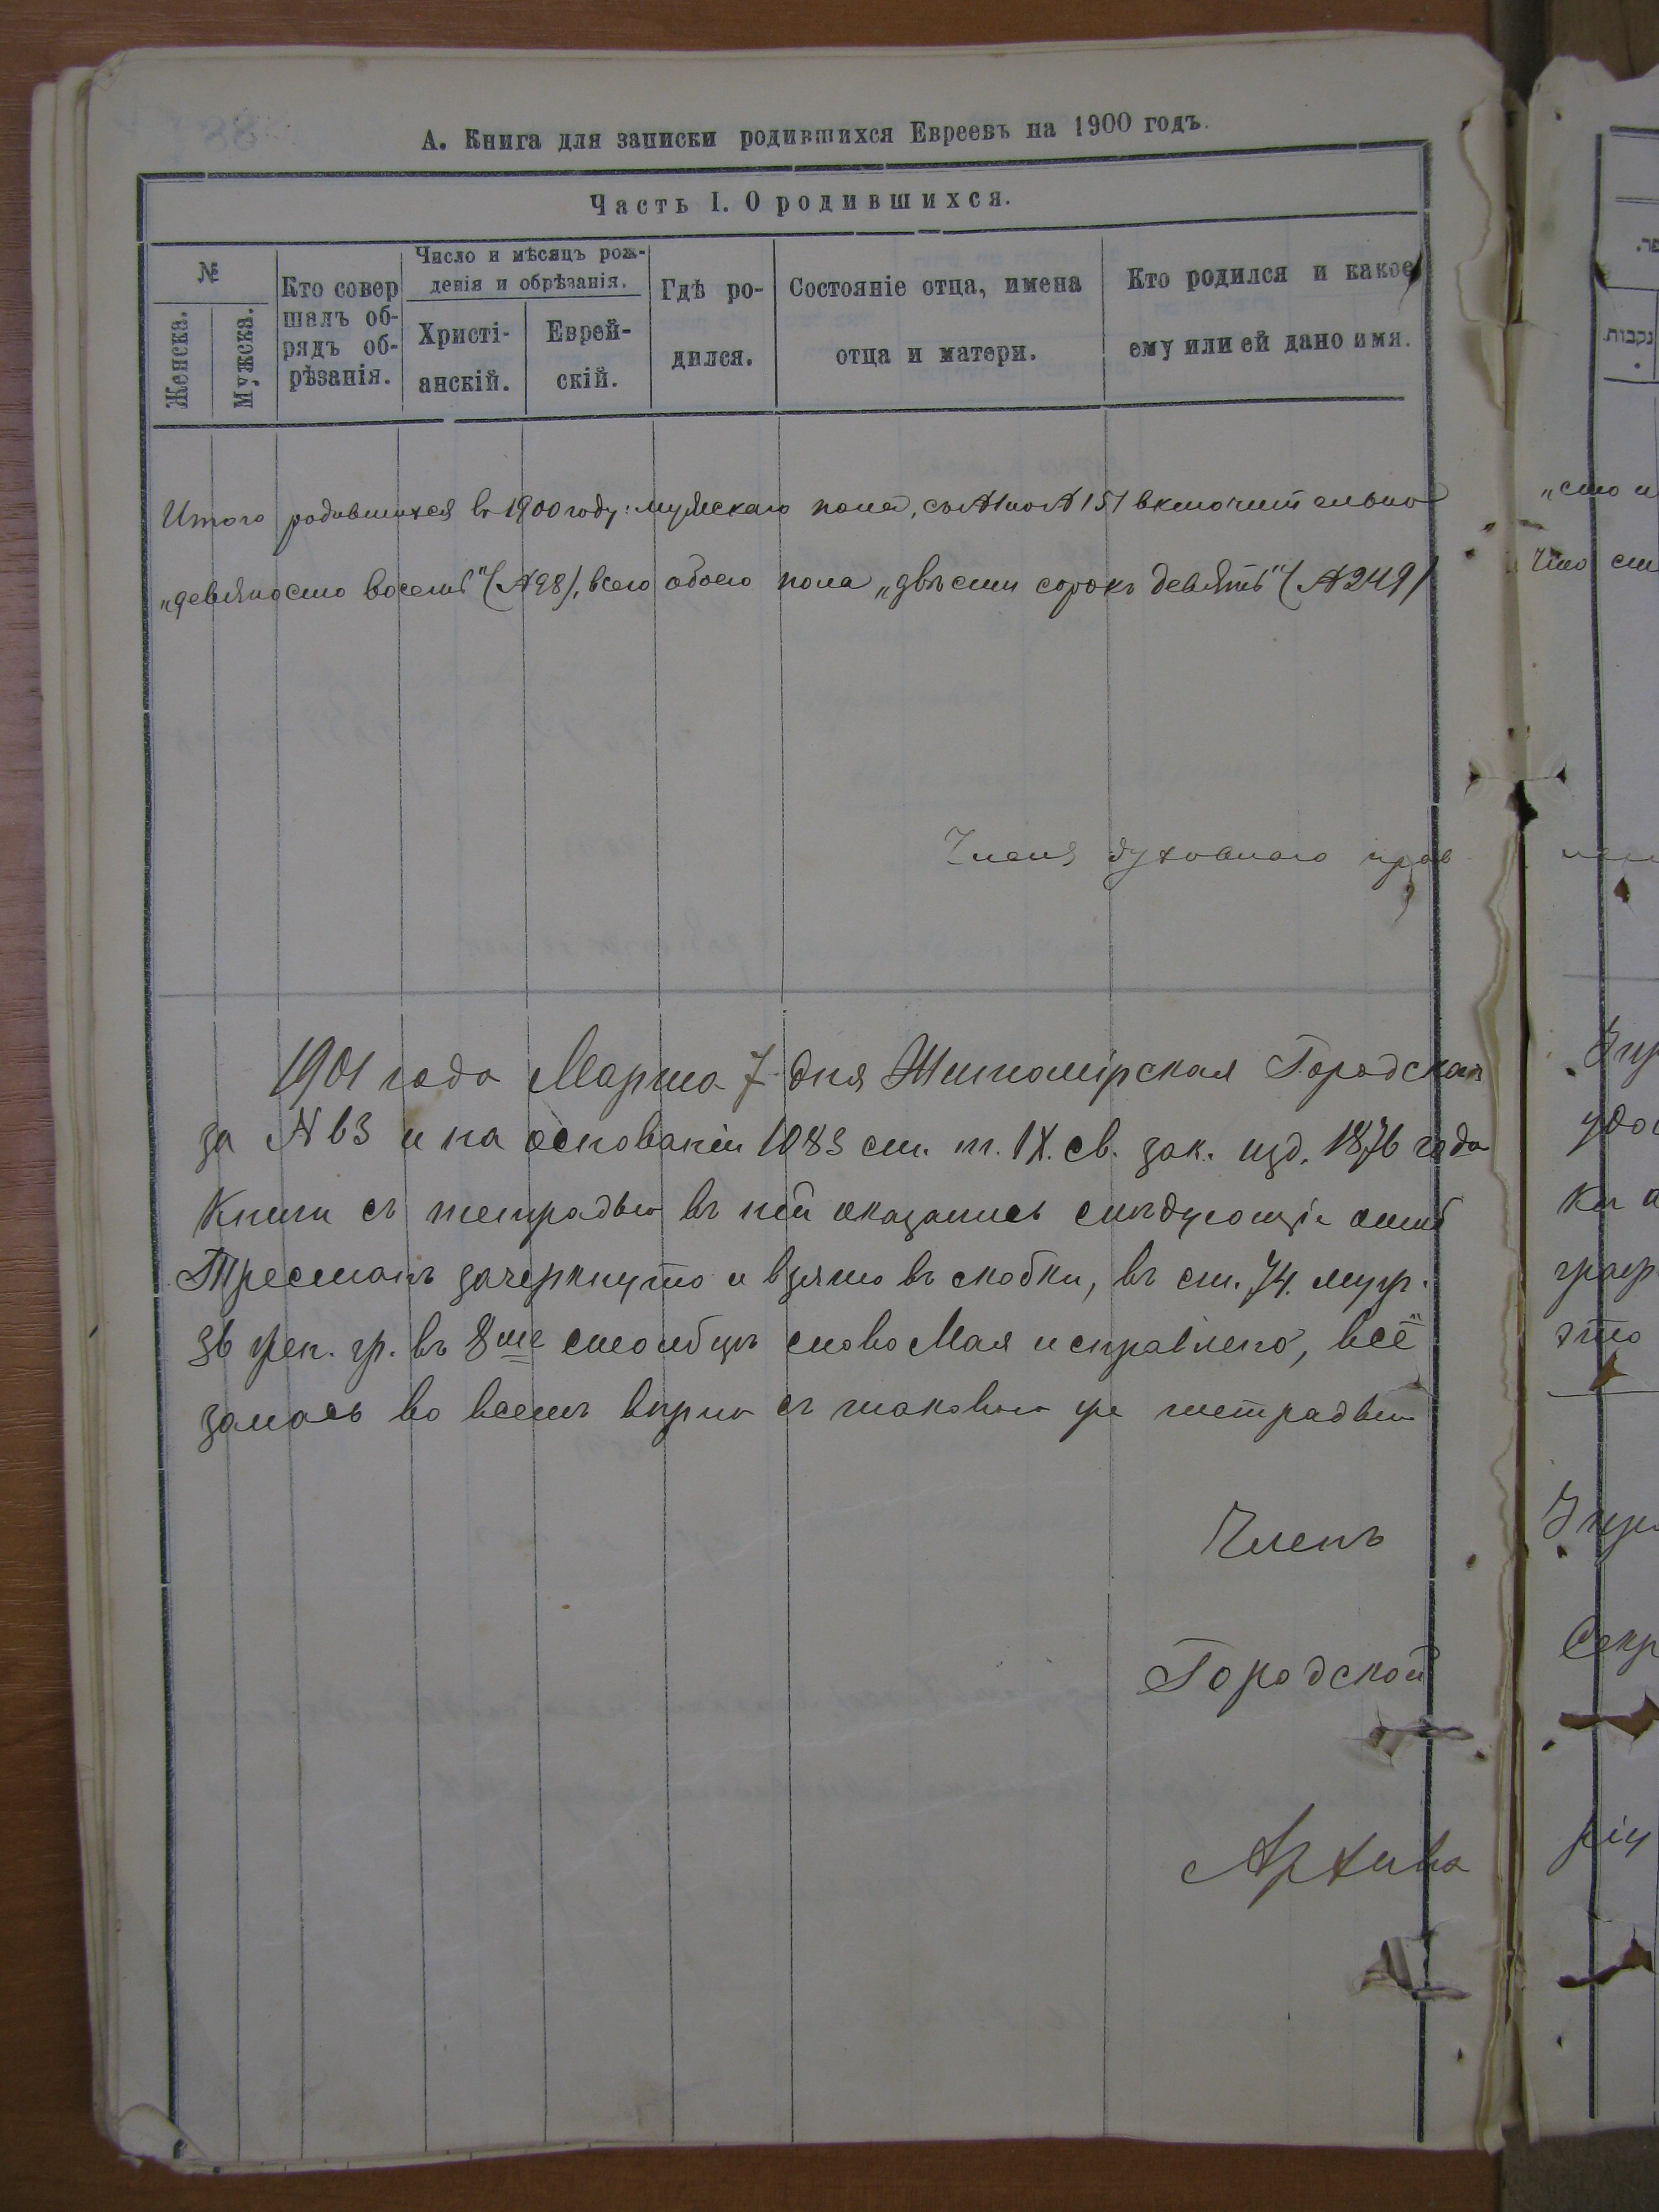 А. Книга для записки родившихся Евреевъ на 1900 годъ.
Часть I. О родившихся.
№
Женска.
Мужска.
Кто совер
шалъ об-
рядъ об-
рѣзанія.
Число и мѣсяцъ рож-
денія и обрѣзанія.
Христі-
анскій.
Еврей-
скій.
Гдѣ ро-
дился.
Состояніе отца, имена
отца и матери.
Кто родился и какое
ему или ей дано имя.
Итого родившихся въ 1900 году: мужскаго пола, съ №1 по №151 включительно
„девяносто восемь" (№98), всего обоего пола „двѣсти сорокъ девять" (№249)
Члены духовнаго прав
1901 года Марта 7 дня Житомірская Городская
за №63 и на основаніи 1083 ст. т. IX. св. зак. изд. 1876 года
Книги съ тетрадью въ ней оказались слѣдующіе ошиб
Тресманъ зачеркнуто и взято въ скобки, въ ст. 74. муж.
36 жен. гр. въ 8мъ столбцѣ слово Мая исправлено, всё
залась во всемъ вѣрно съ таковою же тетрадью
Членъ
Городской
Архива
נקבות
„сто и
что ст
удо
ки
граф
это
Секр